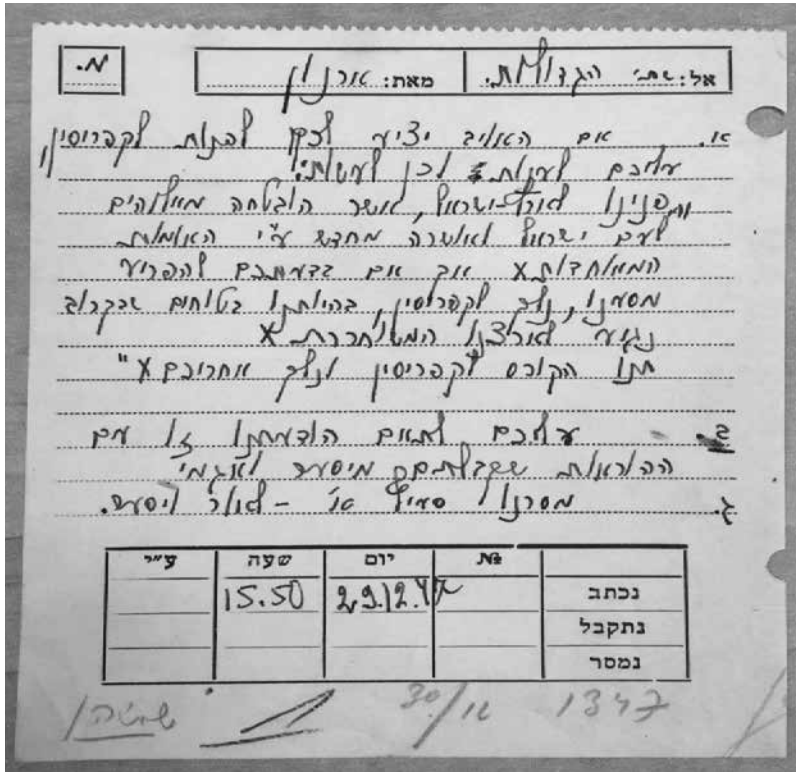 מ.
אל: שתי הגדולות. מאת: ארנון
או. אם האויב יציע לכם לפנות לקפריסין,
עליכם לענות לכן לעשות:
פנינו לארץ-ישראל, אשר הובטחה מאלוהים
לעם ישראל ואושרה מחדש ע"י האומות
המאוחדות x אך אם בדעתכם להפריע
מסענו, נלך לקפריסין, בהיותנו בטוחים שבקרוב
נגיע לארצנו המשוחררת x
תנו הקורס לקפריסין ונלך אחריכם x"
ב. עליכם לתאם הודעתנו זו עם
ההוראות שקבלתם
ג. מסרנו סעיף או'
ע"י שעה יום №
נכתב 29.12.47 15.50
נתקבל
נמסר
30/12 1347